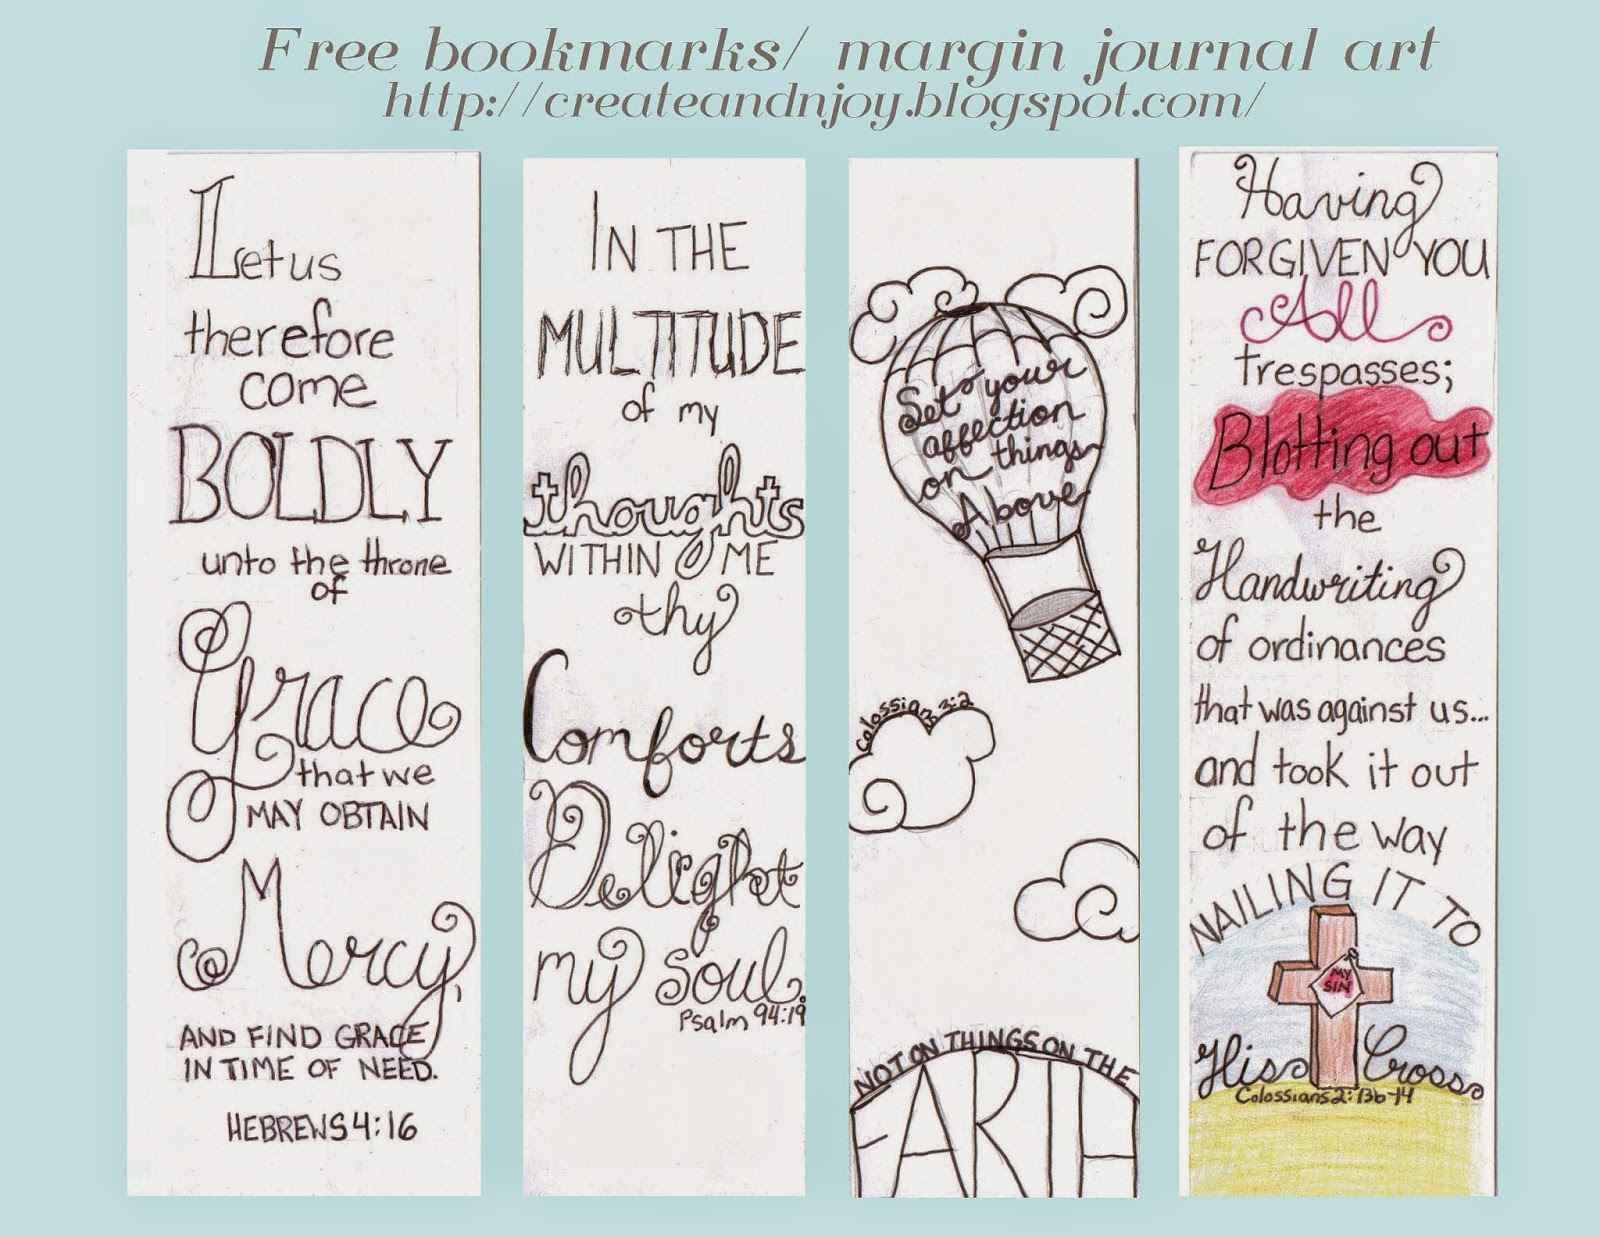 Free bookmarks/ margin journal art
http://createandnjoy.blogspot.com/
Let us
therefore
come
BOLDLY
unto the throne
of
Grace
that we
MAY OBTAIN
Mercy,
AND FIND GRACE
IN TIME OF NEED.
HEBREWS 4:16
IN THE
MULTITUDE
of my
thoughts
WITHIN ME
thy
Comforts
Delight
my soul.
Psalm 94:19
Set your
affection
on things
Above
Colossians 3:2
NOT ON THINGS ON THE
EARTH
Having
FORGIVEN YOU
All
trespasses;
Blotting out
the
Handwriting
of ordinances
that was against us...
and took it out
of the way
NAILING IT TO
MY
SIN
His Cross
Colossians 2:13b-14